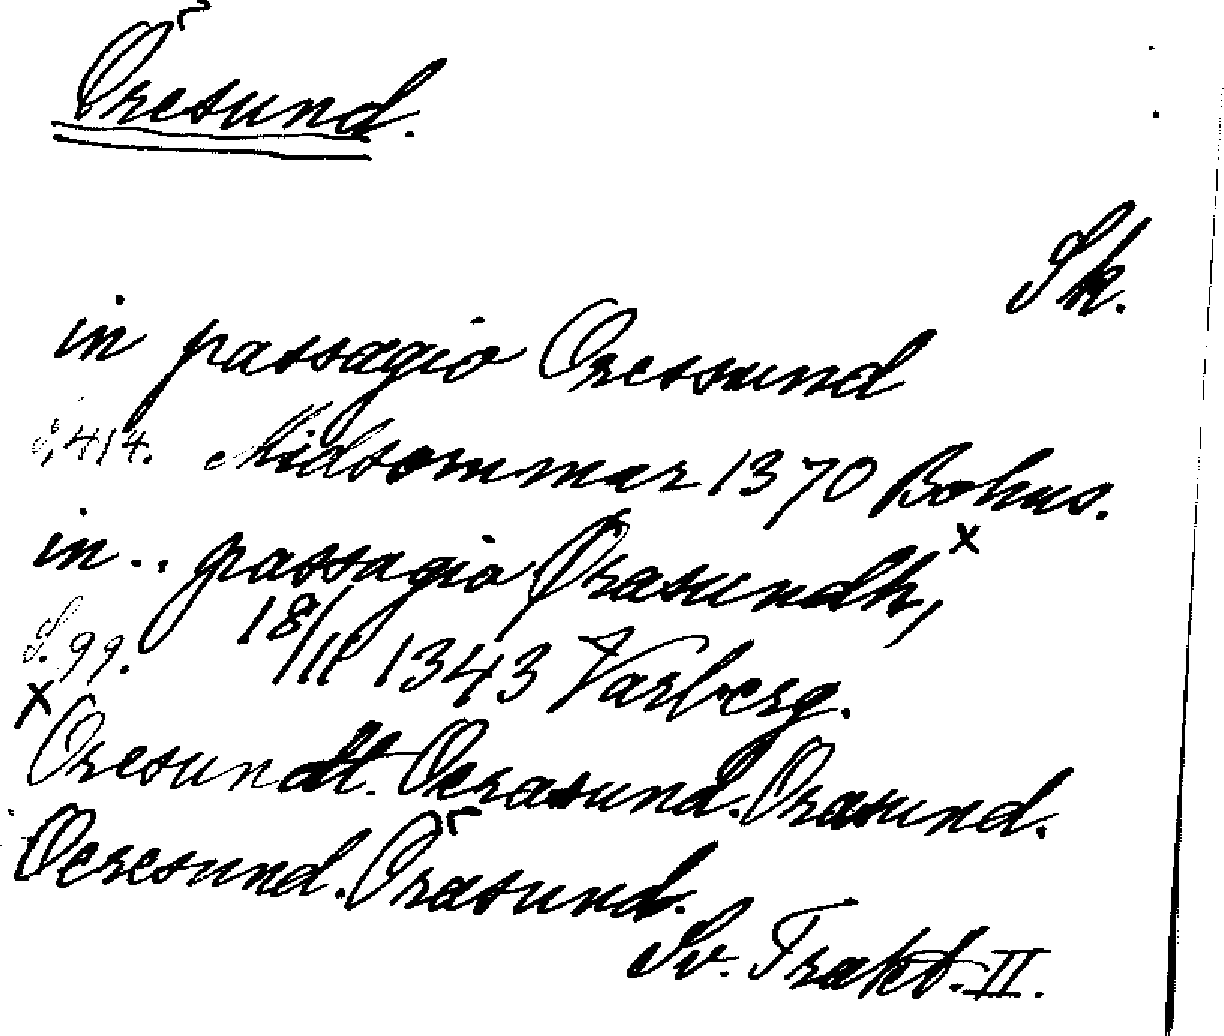 Öresund.
Sk.
in passagio Oressund
S. 414. Midsommar 1370 Bohus.
in .. passagio Ørasundh, x
S. 99. 18/11 1343 Varberg.
x Oresundt. Oerasund. Orasund.
Oeresund. Örasund.
Sv. Trakt. II.